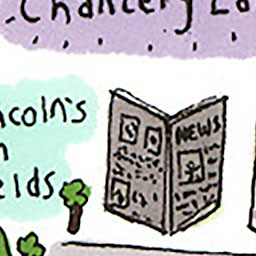 Chancery La
ncoln's
n
elds
NEWS